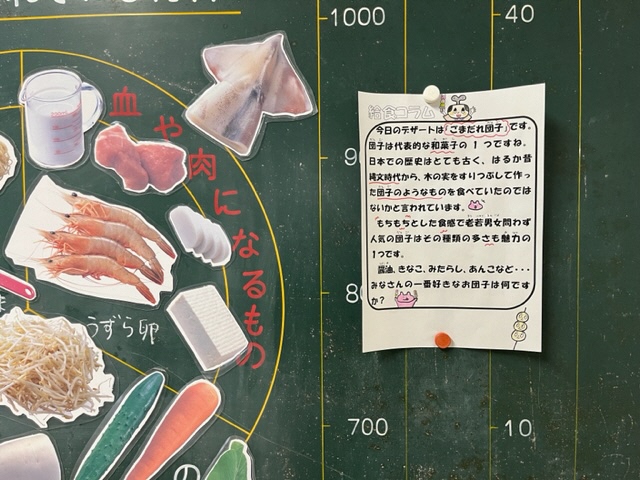 1000
40
900
80
700
10
血や肉になるもの
うずら卵
の
給食コラム
今日のデザートは「ごまだれ団子」です。
団子は代表的な和菓子の１つですね。
日本での歴史はとても古く、はるか昔
縄文時代から、木の実をすりつぶして作っ
た団子のようなものを食べていたのでは
ないかと言われています。
もちもちとした食感で老若男女問わず
人気の団子はその種類の多さも魅力の
１つです。
醤油、きなこ、みたらし、あんこなど・・・
みなさんの一番好きなお団子は何です
か？